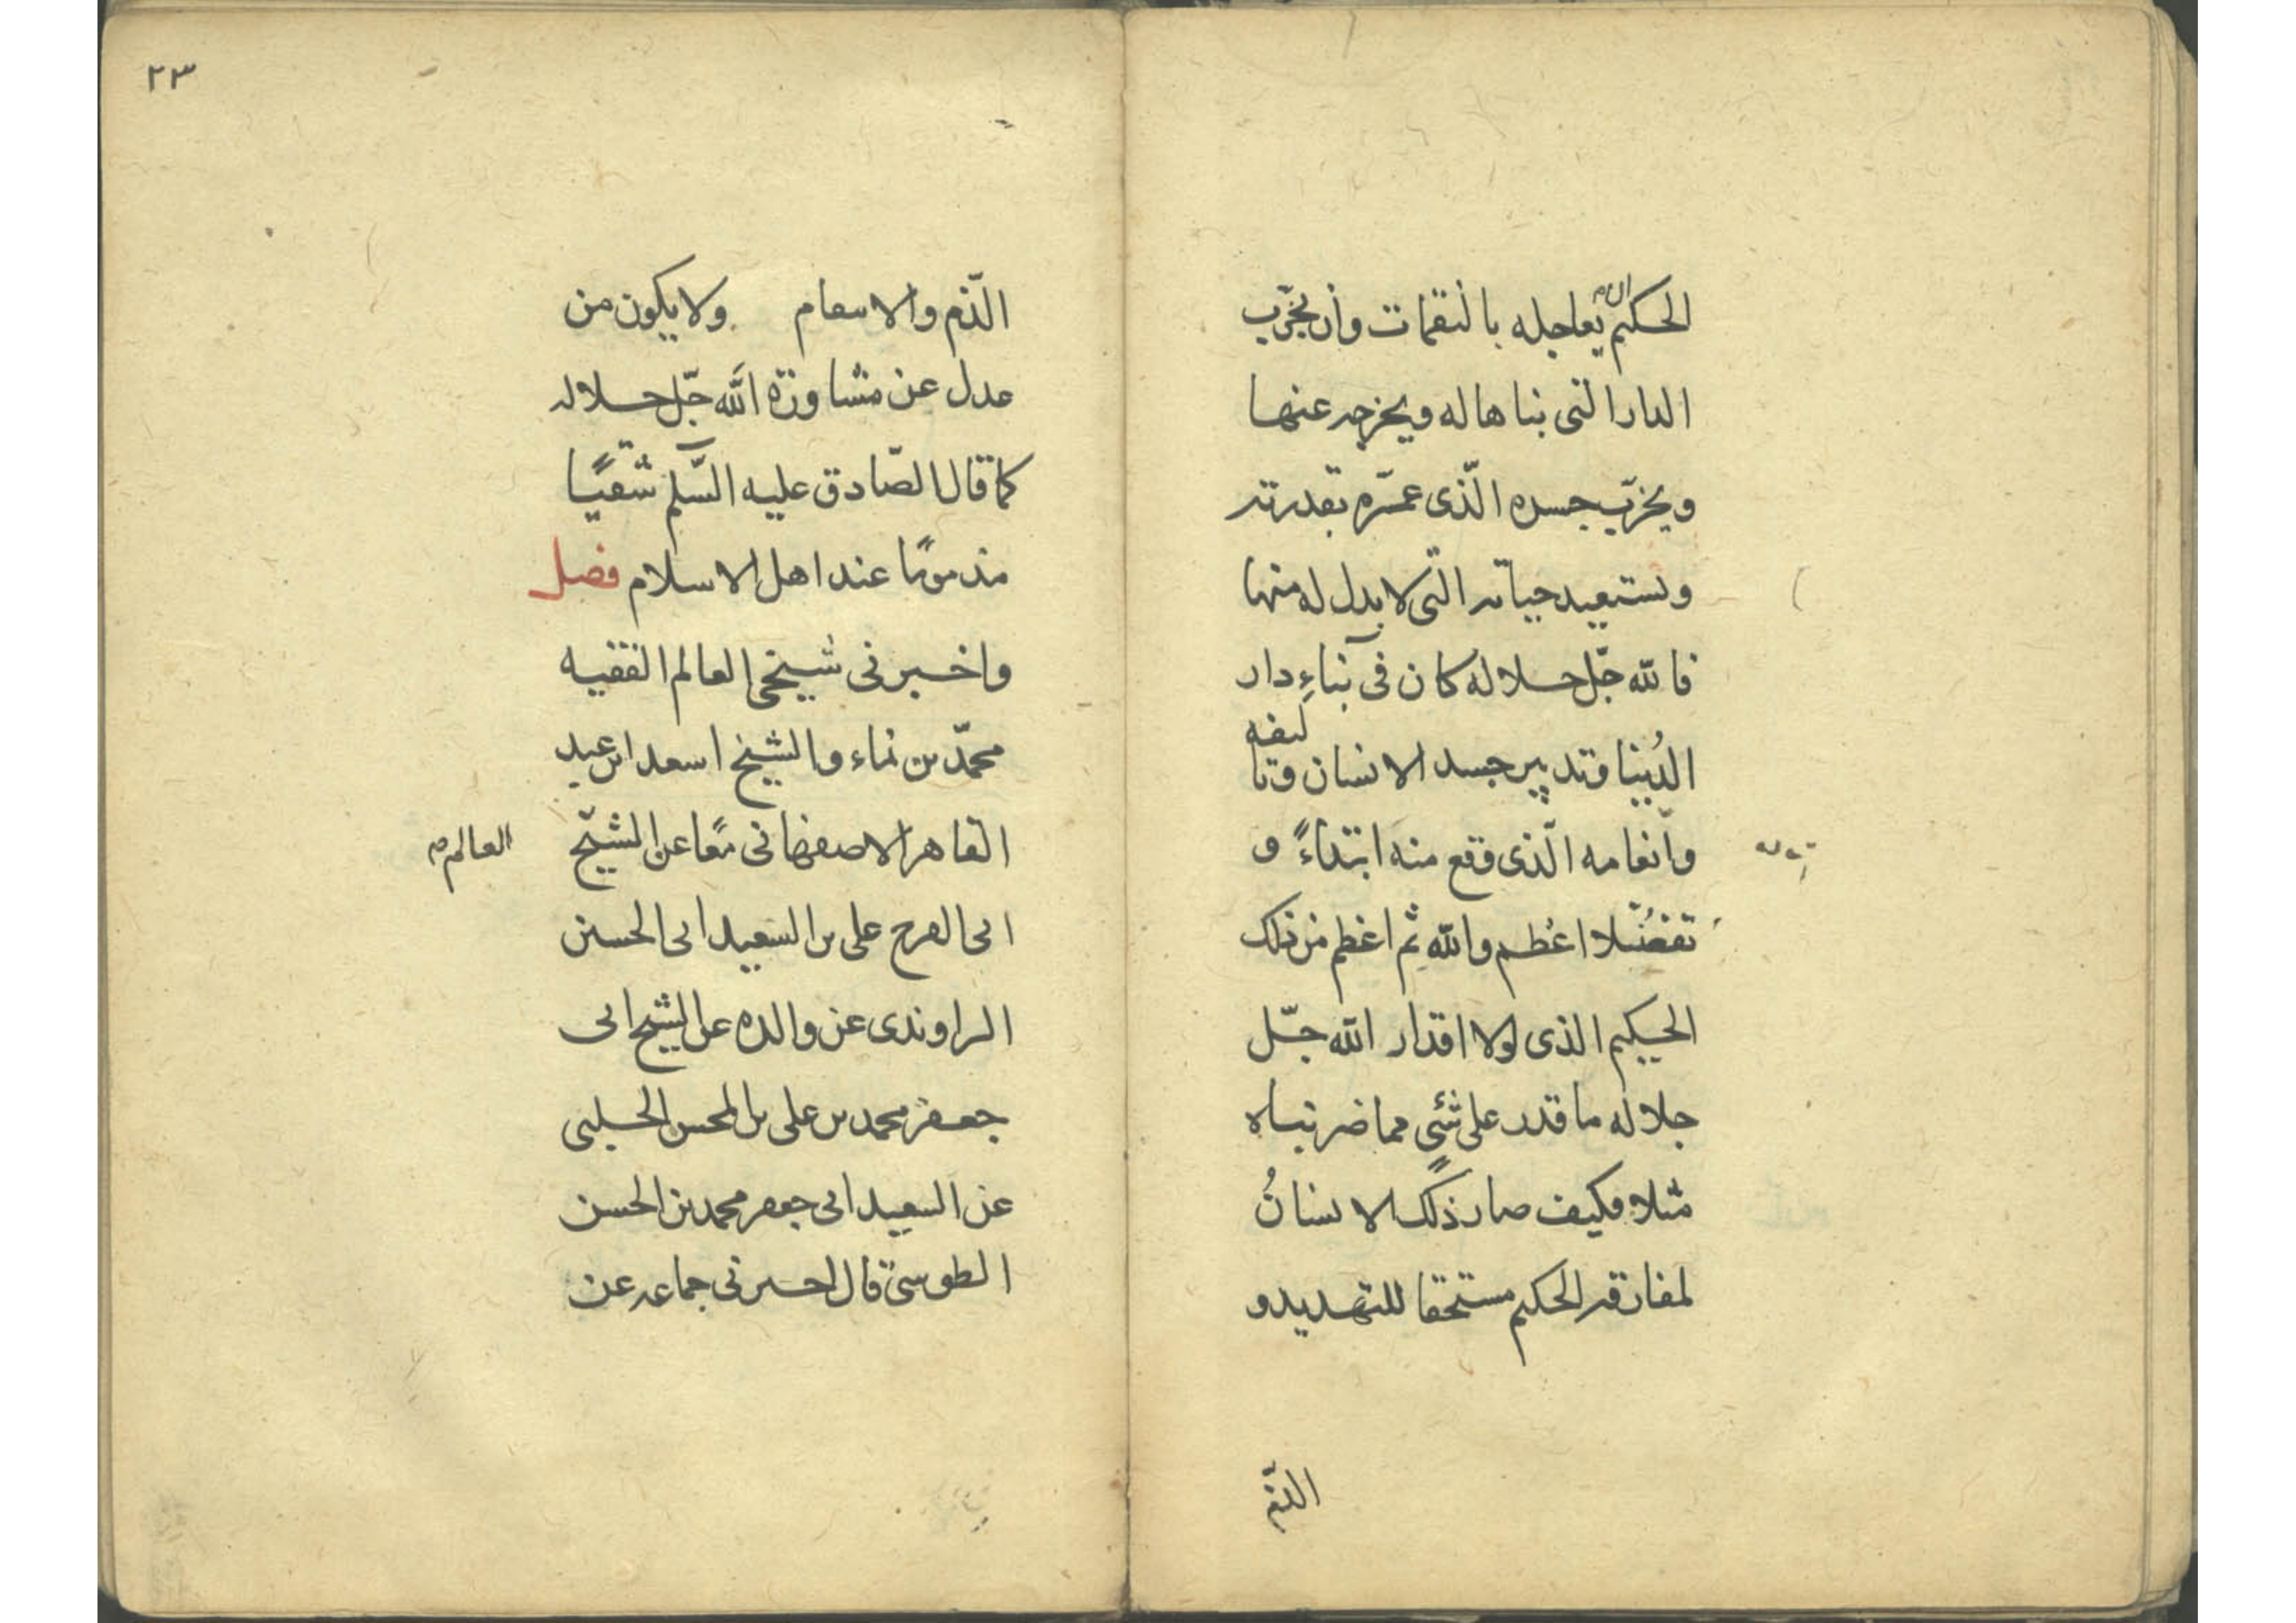 الحكيم ان يعاجله بالنقمات وأن يخرّب
الدار التى بناها له ويخرجه عنها
ويخرّب جسده الّذى عمّره بقدرته
ويستعيد حياته التّى لا بدل له منها
فالله جّل جلاله كان فى بناءِ دار
الدُنيا وتدبير جسد الانسان وتاليفه
وانعامه الّذى وقع منه ابتداءً و
تفضّلا اعظم والله ثم اعظم من ذلك
الحكيم الذى لولا اقدار الله جّل
جلاله ما قدر على شئ مما ضربناه
مثلا فكيف صار ذلك الانسانُ
لمفارقه الحكيم مستحقا للتهديد و
الذّم
٢٣
الذّم والاسعام ولا يكون من
عدل عن مشاورة الله جّل جلاله
كما قال الصّادق عليه السّلم شقيًّا
مذمومًا عند اهل الاسلام فصل
واخبرنى شيخى العالم الفقيه
محمّد بن نماء والشيخ اسعد ابن عبد
القاهر الاصفهانى معًا عن الشيّخ
العالم
ابى الفرج على بن السعيد ابى الحسين
الراوندى عن والده عن الشيخ ابى
جعفر محمد بن على بن المحسن الحلبى
عن السعيد ابى جعفر محمد بن الحسن
الطوسى قال اخبرنى جماعه عن